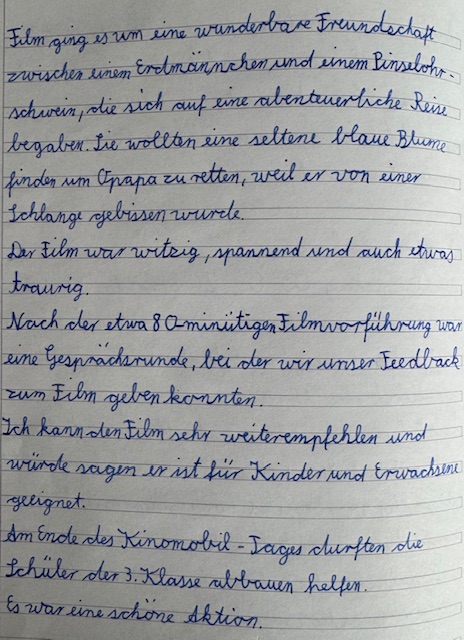 Film ging es um eine wunderbare Freundschaft
zwischen einem Erdmännchen und einem Pinselohr-
schwein, die sich auf eine abenteuerliche Reise
begaben. Sie wollten eine seltene blaue Blume
finden um Opapa zu retten, weil er von einer
Schlange gebissen wurde.
Der Film war witzig, spannend und auch etwas
traurig.
Nach der etwa 80-minütigen Filmvorführung war
eine Gesprächsrunde, bei der wir unser Feedback
zum Film geben konnten.
Ich kann den Film sehr weiterempfehlen und
würde sagen er ist für Kinder und Erwachsene
geeignet.
Am Ende des Kinomobil-Tages durften die
Schüler der 3. Klasse abbauen helfen.
Es war eine schöne Aktion.